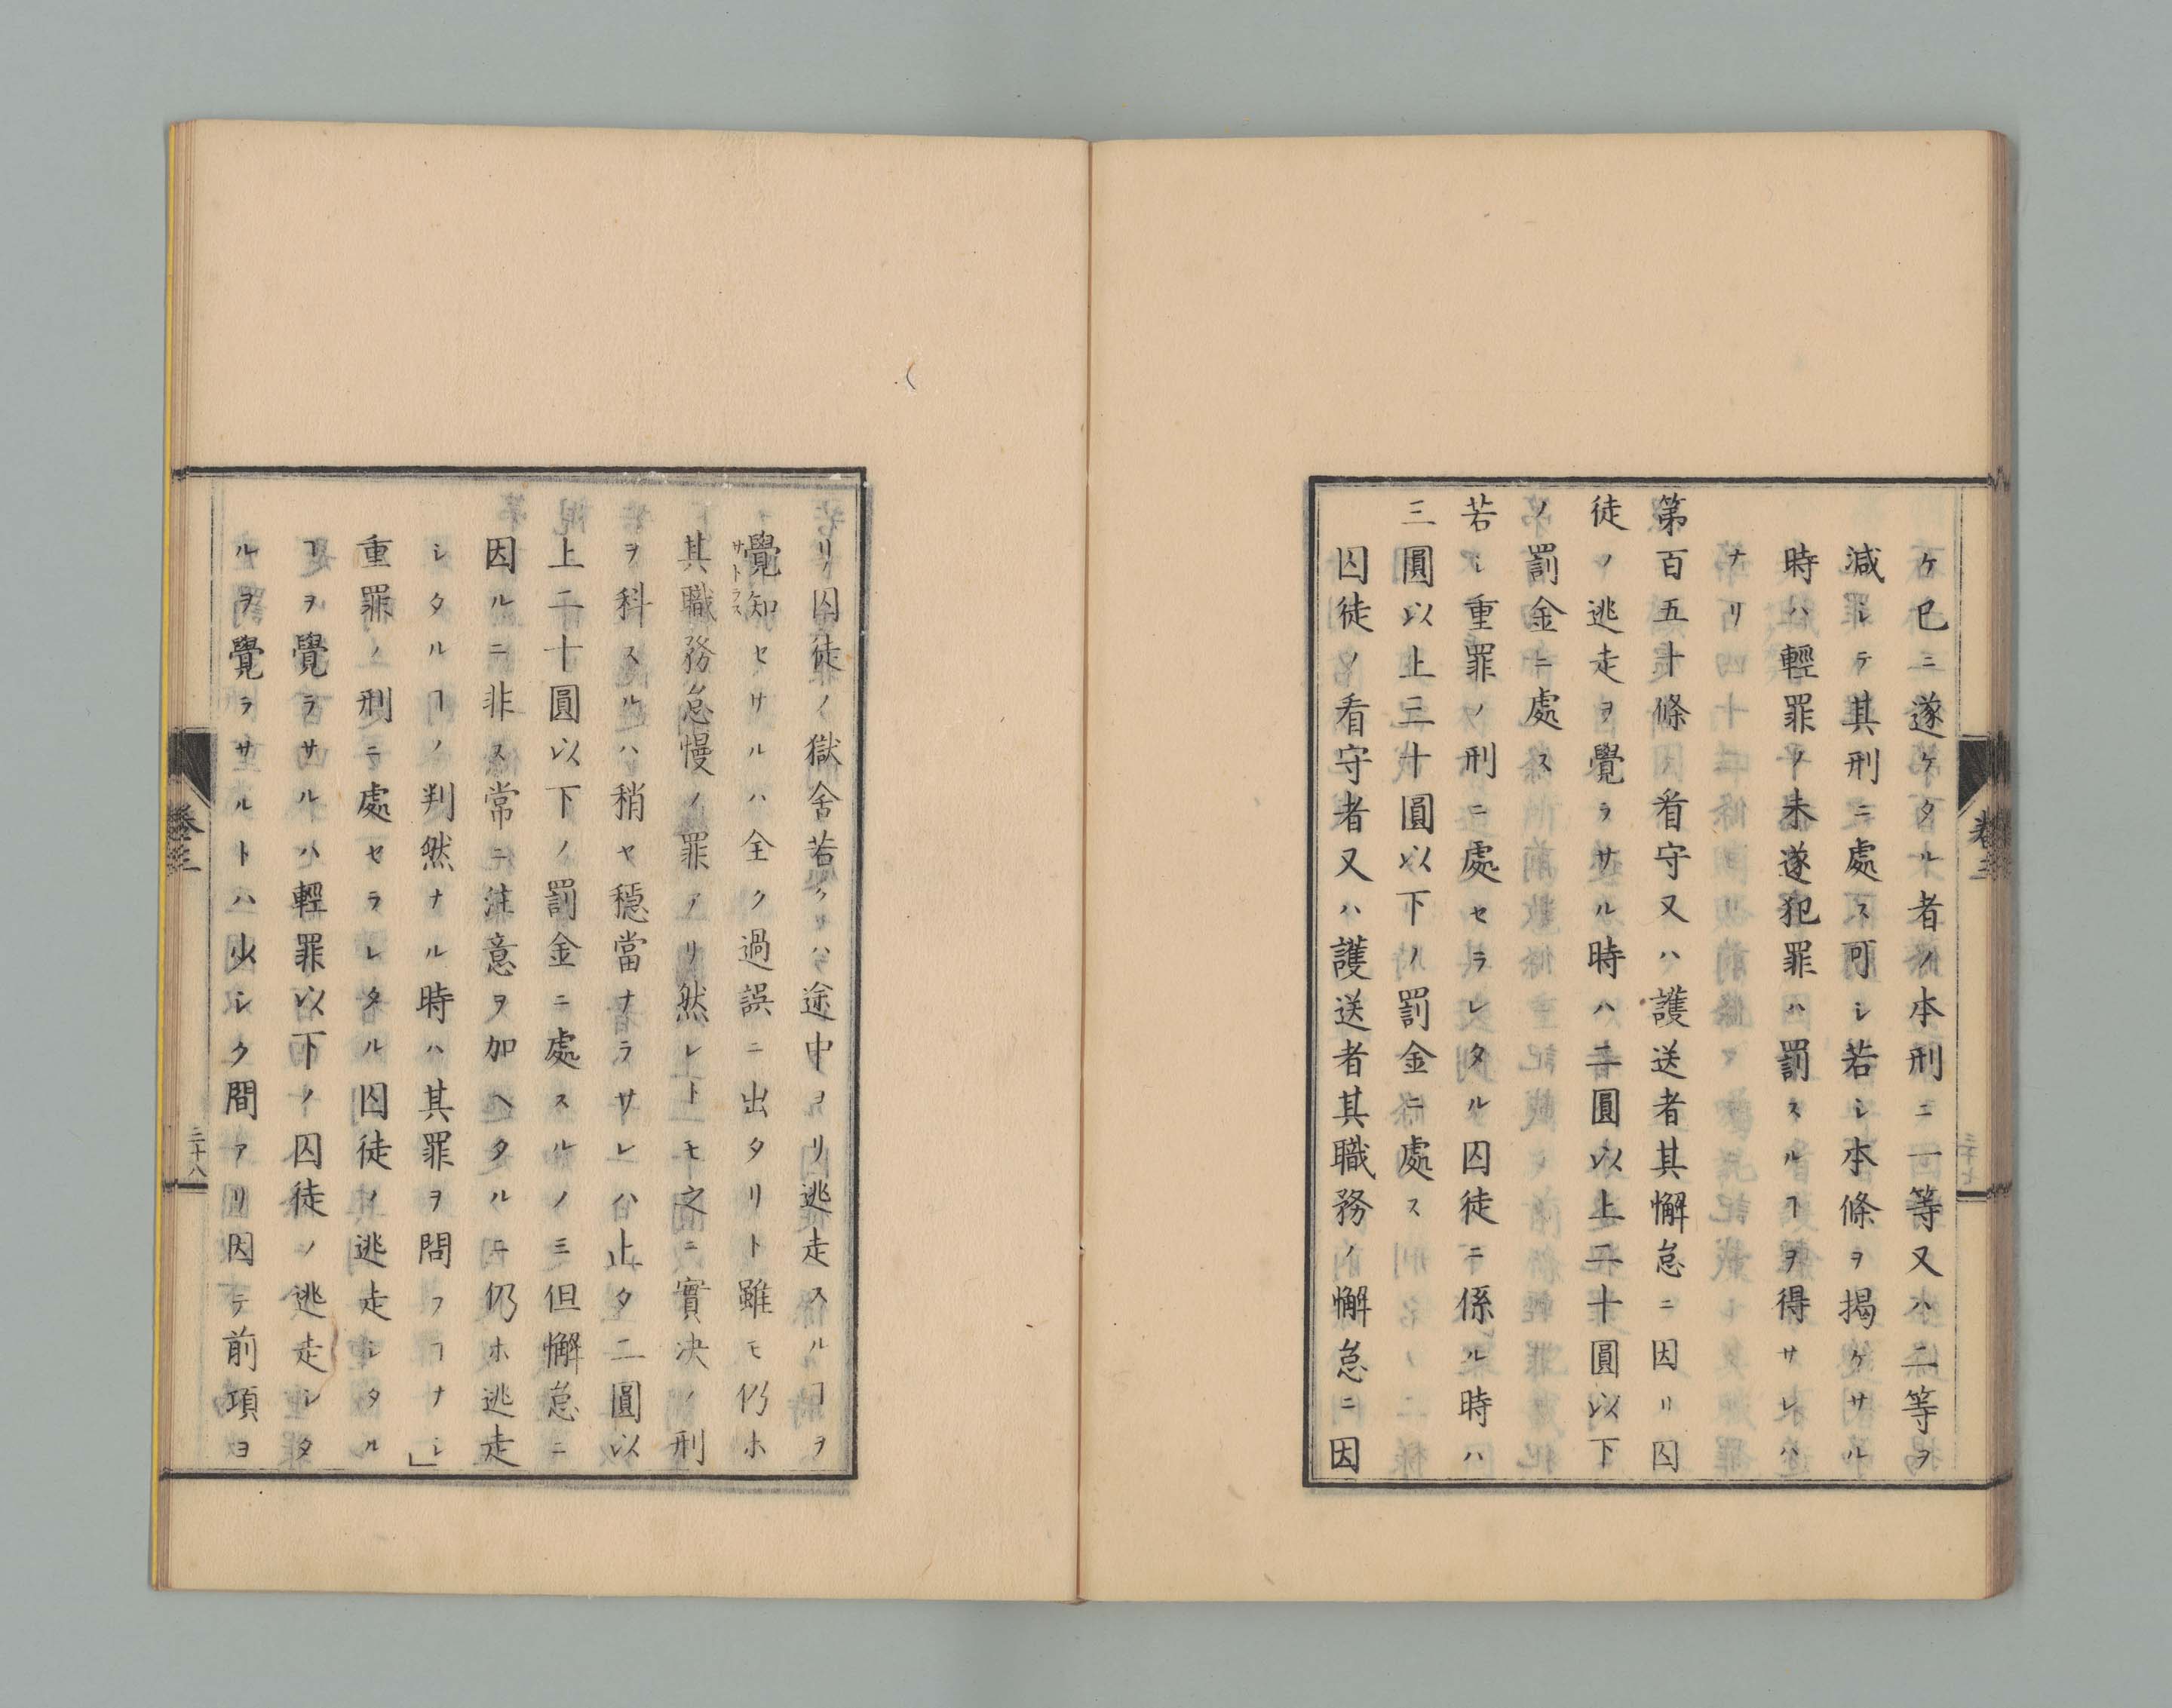 ケ已ニ遂ケタル者ノ本刑ニ一等又ハ二等ヲ
減シテ其刑ニ處ス可シ若シ本條ヲ揭ケサル
時ハ輕罪ノ未遂犯罪ハ罰スルヿヲ得サレハ
ナリ
第百五十條看守又ハ護送者其懈怠ニ因リ囚
徒ノ逃走ヲ覺ラサル時ハ二圓以上二十圓以下
ノ罰金ニ處ス
若シ重罪ノ刑ニ處セラレタル囚徒ニ係ル時ハ
三圓以上三十圓以下ノ罰金ニ處ス
囚徒ノ看守者又ハ護送者其職務ノ懈怠ニ因
卷三
リ囚徒ノ獄舍若クハ途中ヨリ逃走スルヿヲ
覺知セサルハ全ク過誤ニ出タリト雖モ仍ホ
サトラス
其職務怠慢ノ罪アリ然レトモ之ニ實决ノ刑
ヲ科スルハ稍ヤ穩當ナラサレハ止タ二圓以
上二十圓以下ノ罰金ニ處スルノミ但懈怠ニ
因ルニ非ス常ニ注意ヲ加ヘタルニ仍ホ逃走
シタルヿノ判然ナル時ハ其罪ヲ問フヿナシ」
重罪ノ刑ニ處セラレタル囚徒ノ逃走シタル
ヿヲ覺ラサルハ輕罪以下ノ囚徒ノ逃走シタ
ルヲ覺ラサルトハ少シク間アリ因テ前項ヨ
卷三
三十八